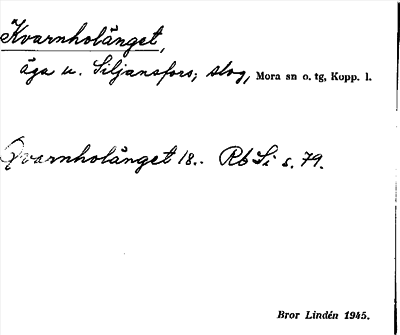 Kvarnholänget,
äga u. Siljansfors; skog, Mora sn o. tg, Kopp. l.
Qvarnholänget 18.. Rb Si s. 79.
Bror Lindén 1945.